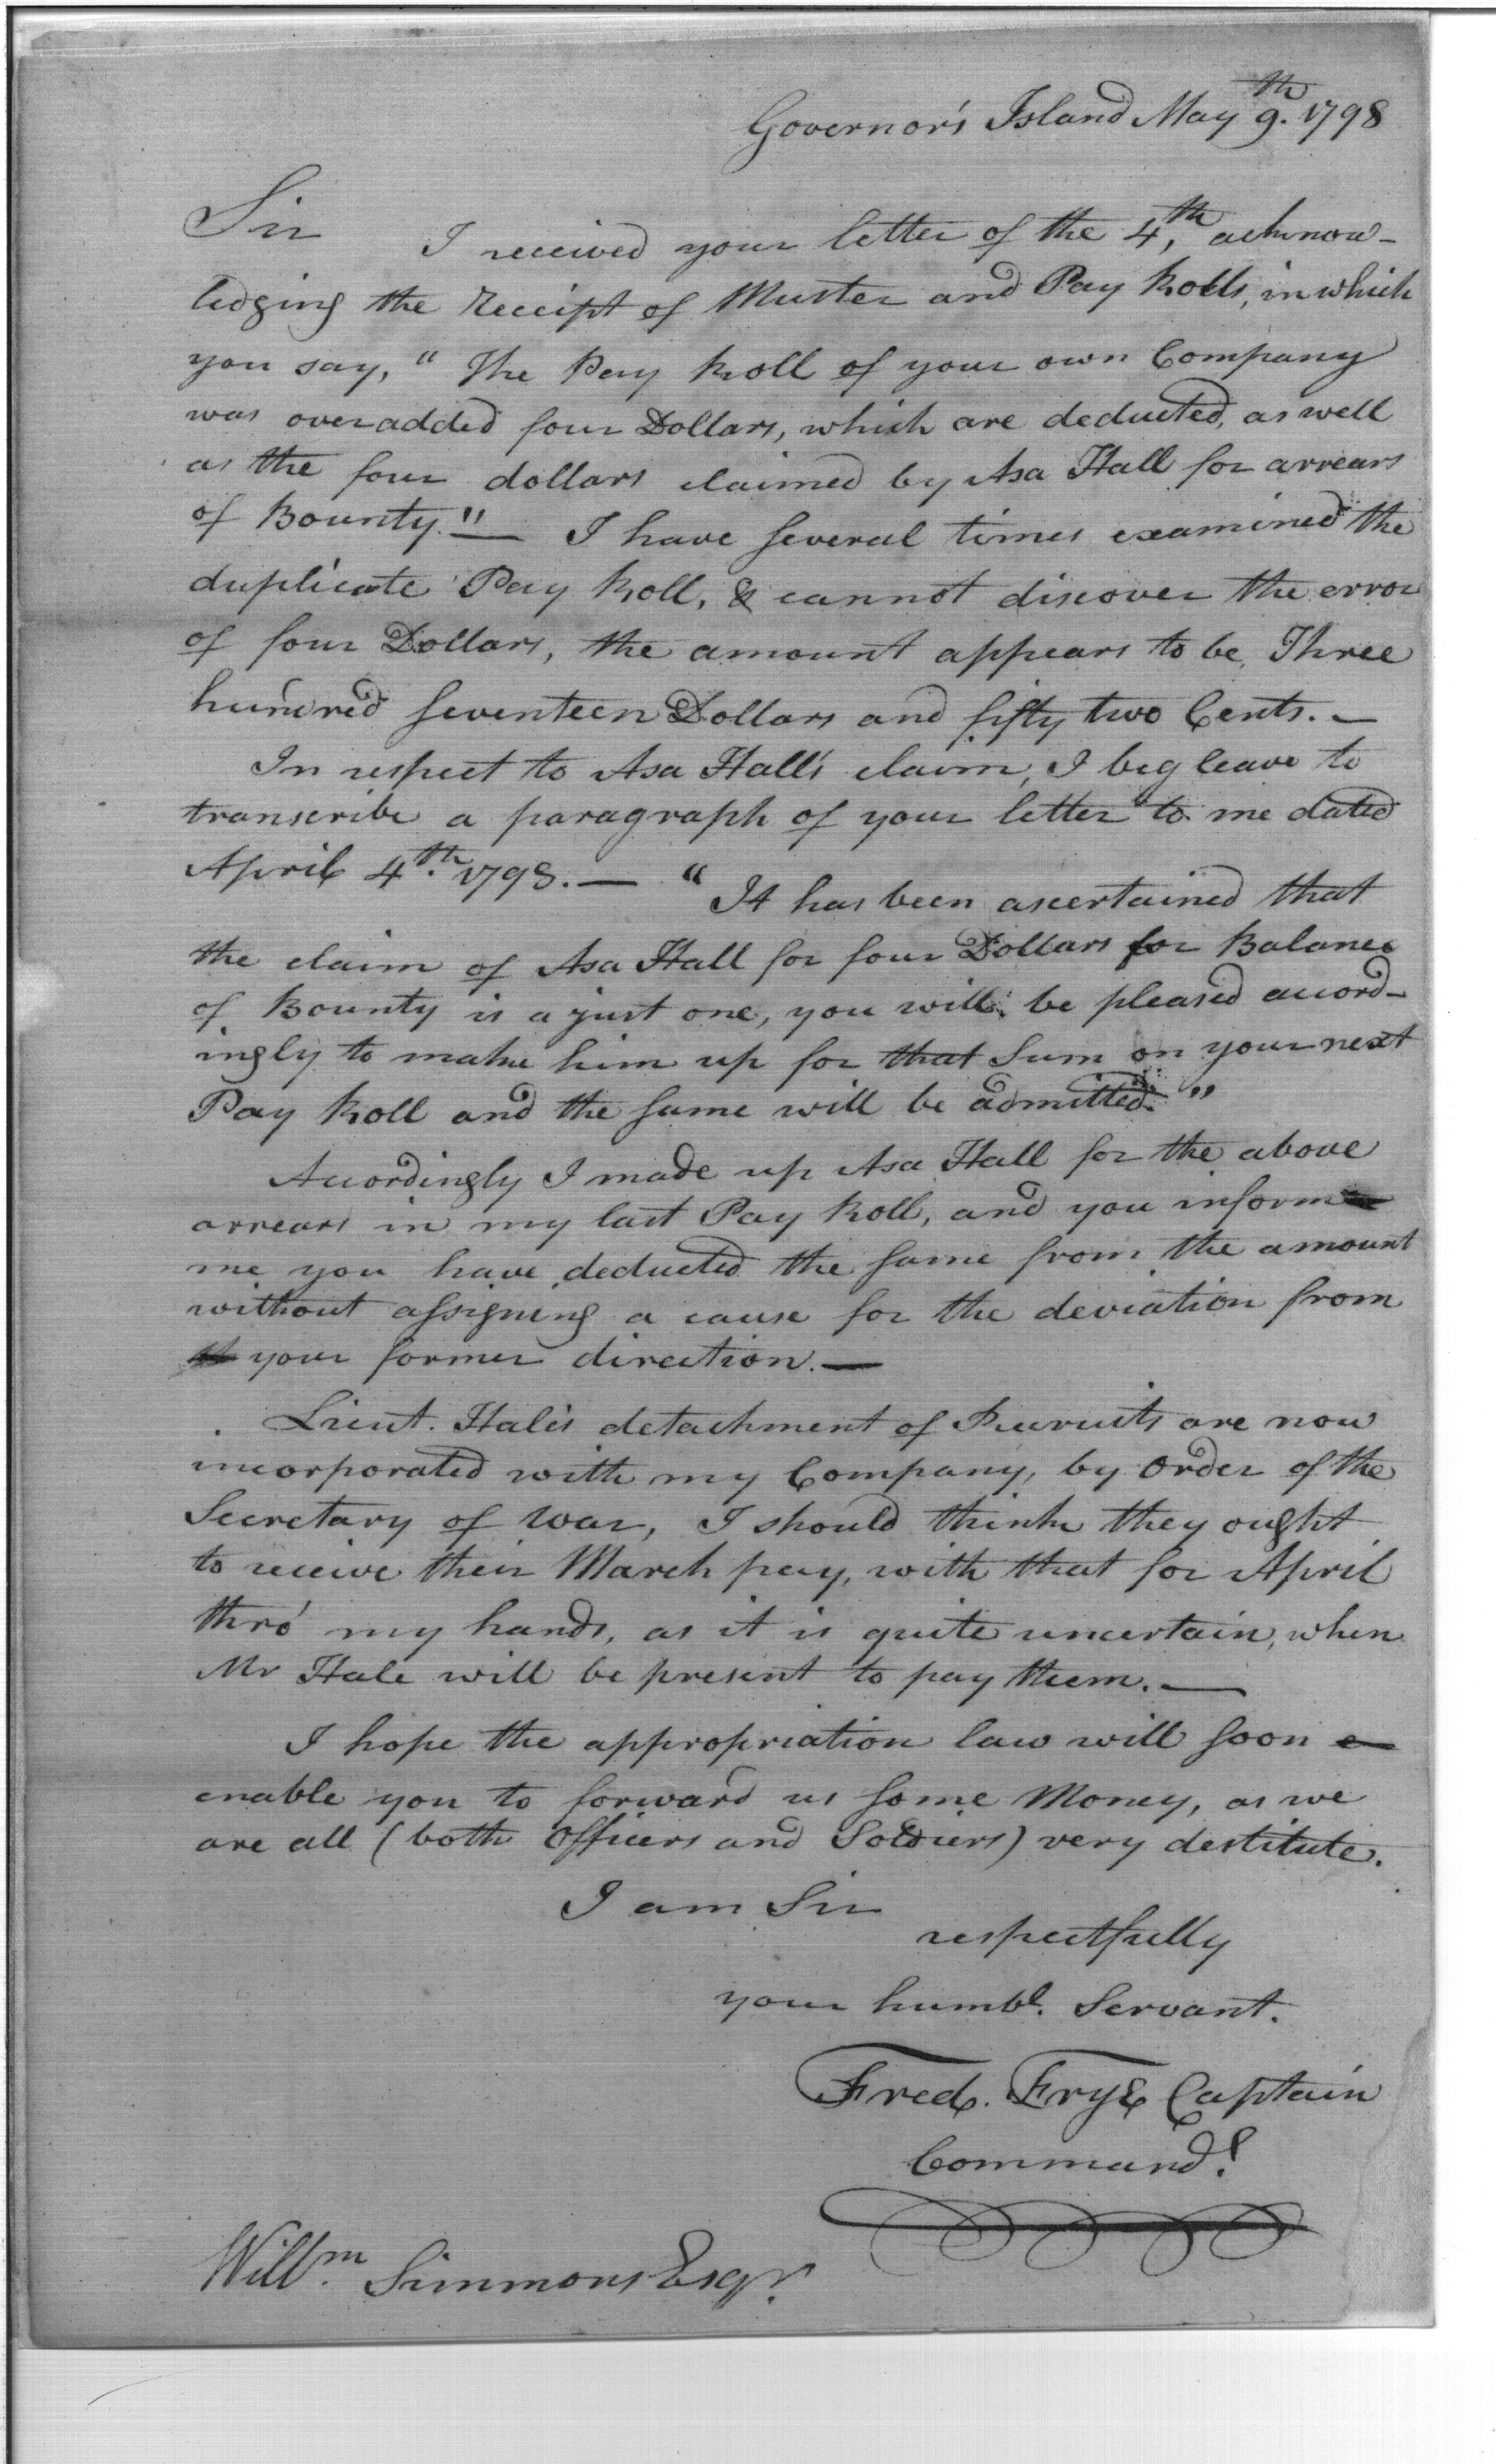 Governor's Island May 9th. 1798
Sir
I received your letter of the 4th, acknow-
ledging the Receipt of Muster and Pay Rolls, in which
you say, "The Pay Roll of your own Company
was overadded four Dollars, which are deducted, as well
as the four dollars claimed by Asa Hall for arrears
of Bounty."— I have several times examined the
duplicate Pay Roll, & cannot discover the error
of four Dollars, the amount appears to be, Three
hundred seventeen Dollars and fifty two Cents.—
In respect to Asa Hall's claim, I beg leave to
transcribe a paragraph of your letter to me dated
April 4th. 1798.— "It has been ascertained that
the claim of Asa Hall for four Dollars for Balance
of Bounty is a just one, you will be pleased accord-
ingly to make him up for that Sum on your next
Pay Roll and the same will be admitted."
Accordingly I made up Asa Hall for the above
arrears in my last Pay Roll, and you inform
me you have deducted the same from the amount
without assigning a cause for the deviation from
your former direction.—
Lieut. Hale's detachment of Recruits are now
incorporated with my Company, by order of the
Secretary of War, I should think they ought
to receive their March pay, with that for April
thro' my hands, as it is quite uncertain, when
Mr Hale will be present to pay them.—
I hope the appropriation law will soon
enable you to forward us some Money, as we
are all (both Officers and Soldiers) very destitute.
I am Sir
respectfully
your humbl. Servant.
Fred. Frye Captain
Command.
Willm. Simmons Esqr.